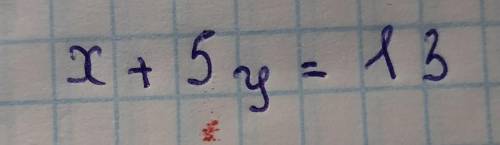 x + 5y = 13